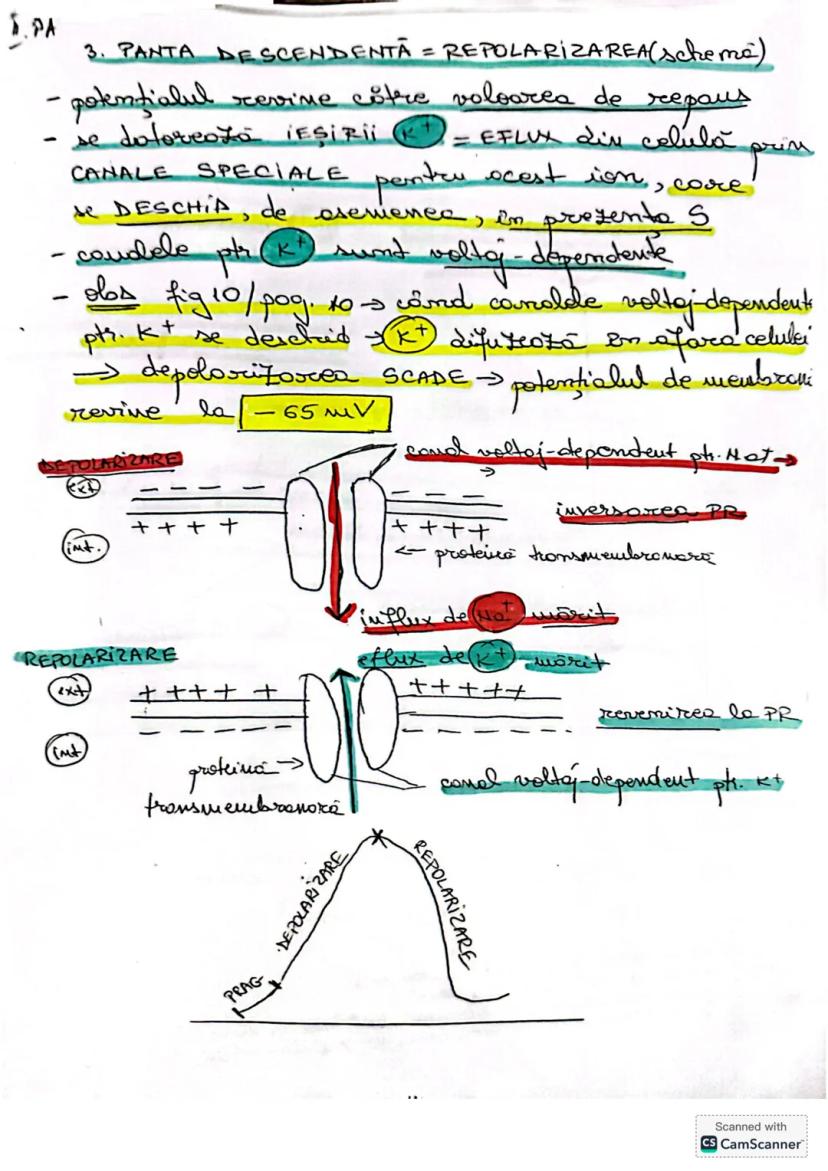 I. PA
3. PANTA DESCENDENTĂ = REPOLARIZAREA (schemă)
- potențialul revine către valoarea de repaus
- se datorează IEȘIRII K+ = EFLUX din celulă prin
CANALE SPECIALE pentru acest ion, care
se DESCHID, de asemenea, în prezența S
- canalele ptr. K+ sunt voltaj-dependente
- obs fig 10/pag. 10 → când canalele voltaj-dependente
ptr. K+ se deschid → K+ difuzează în afara celulei
→ depolarizarea SCADE → potențialul de membrană
revine la - 65 mV
DEPOLARIZARE
canal voltaj-dependent ptr. Na+ →
ext
- - - - -
- - - -
inversarea PR
+ + + +
+ + + +
int.
← proteină transmembranară
influx de Na+ mărit
REPOLARIZARE
eflux de K+ mărit
ext
+ + + + +
+ + + + +
revenirea la PR
int
proteină →
transmembranară
canal voltaj-dependent ptr. K+
DEPOLARIZARE
REPOLARIZARE
PRAG
Scanned with
CS CamScanner